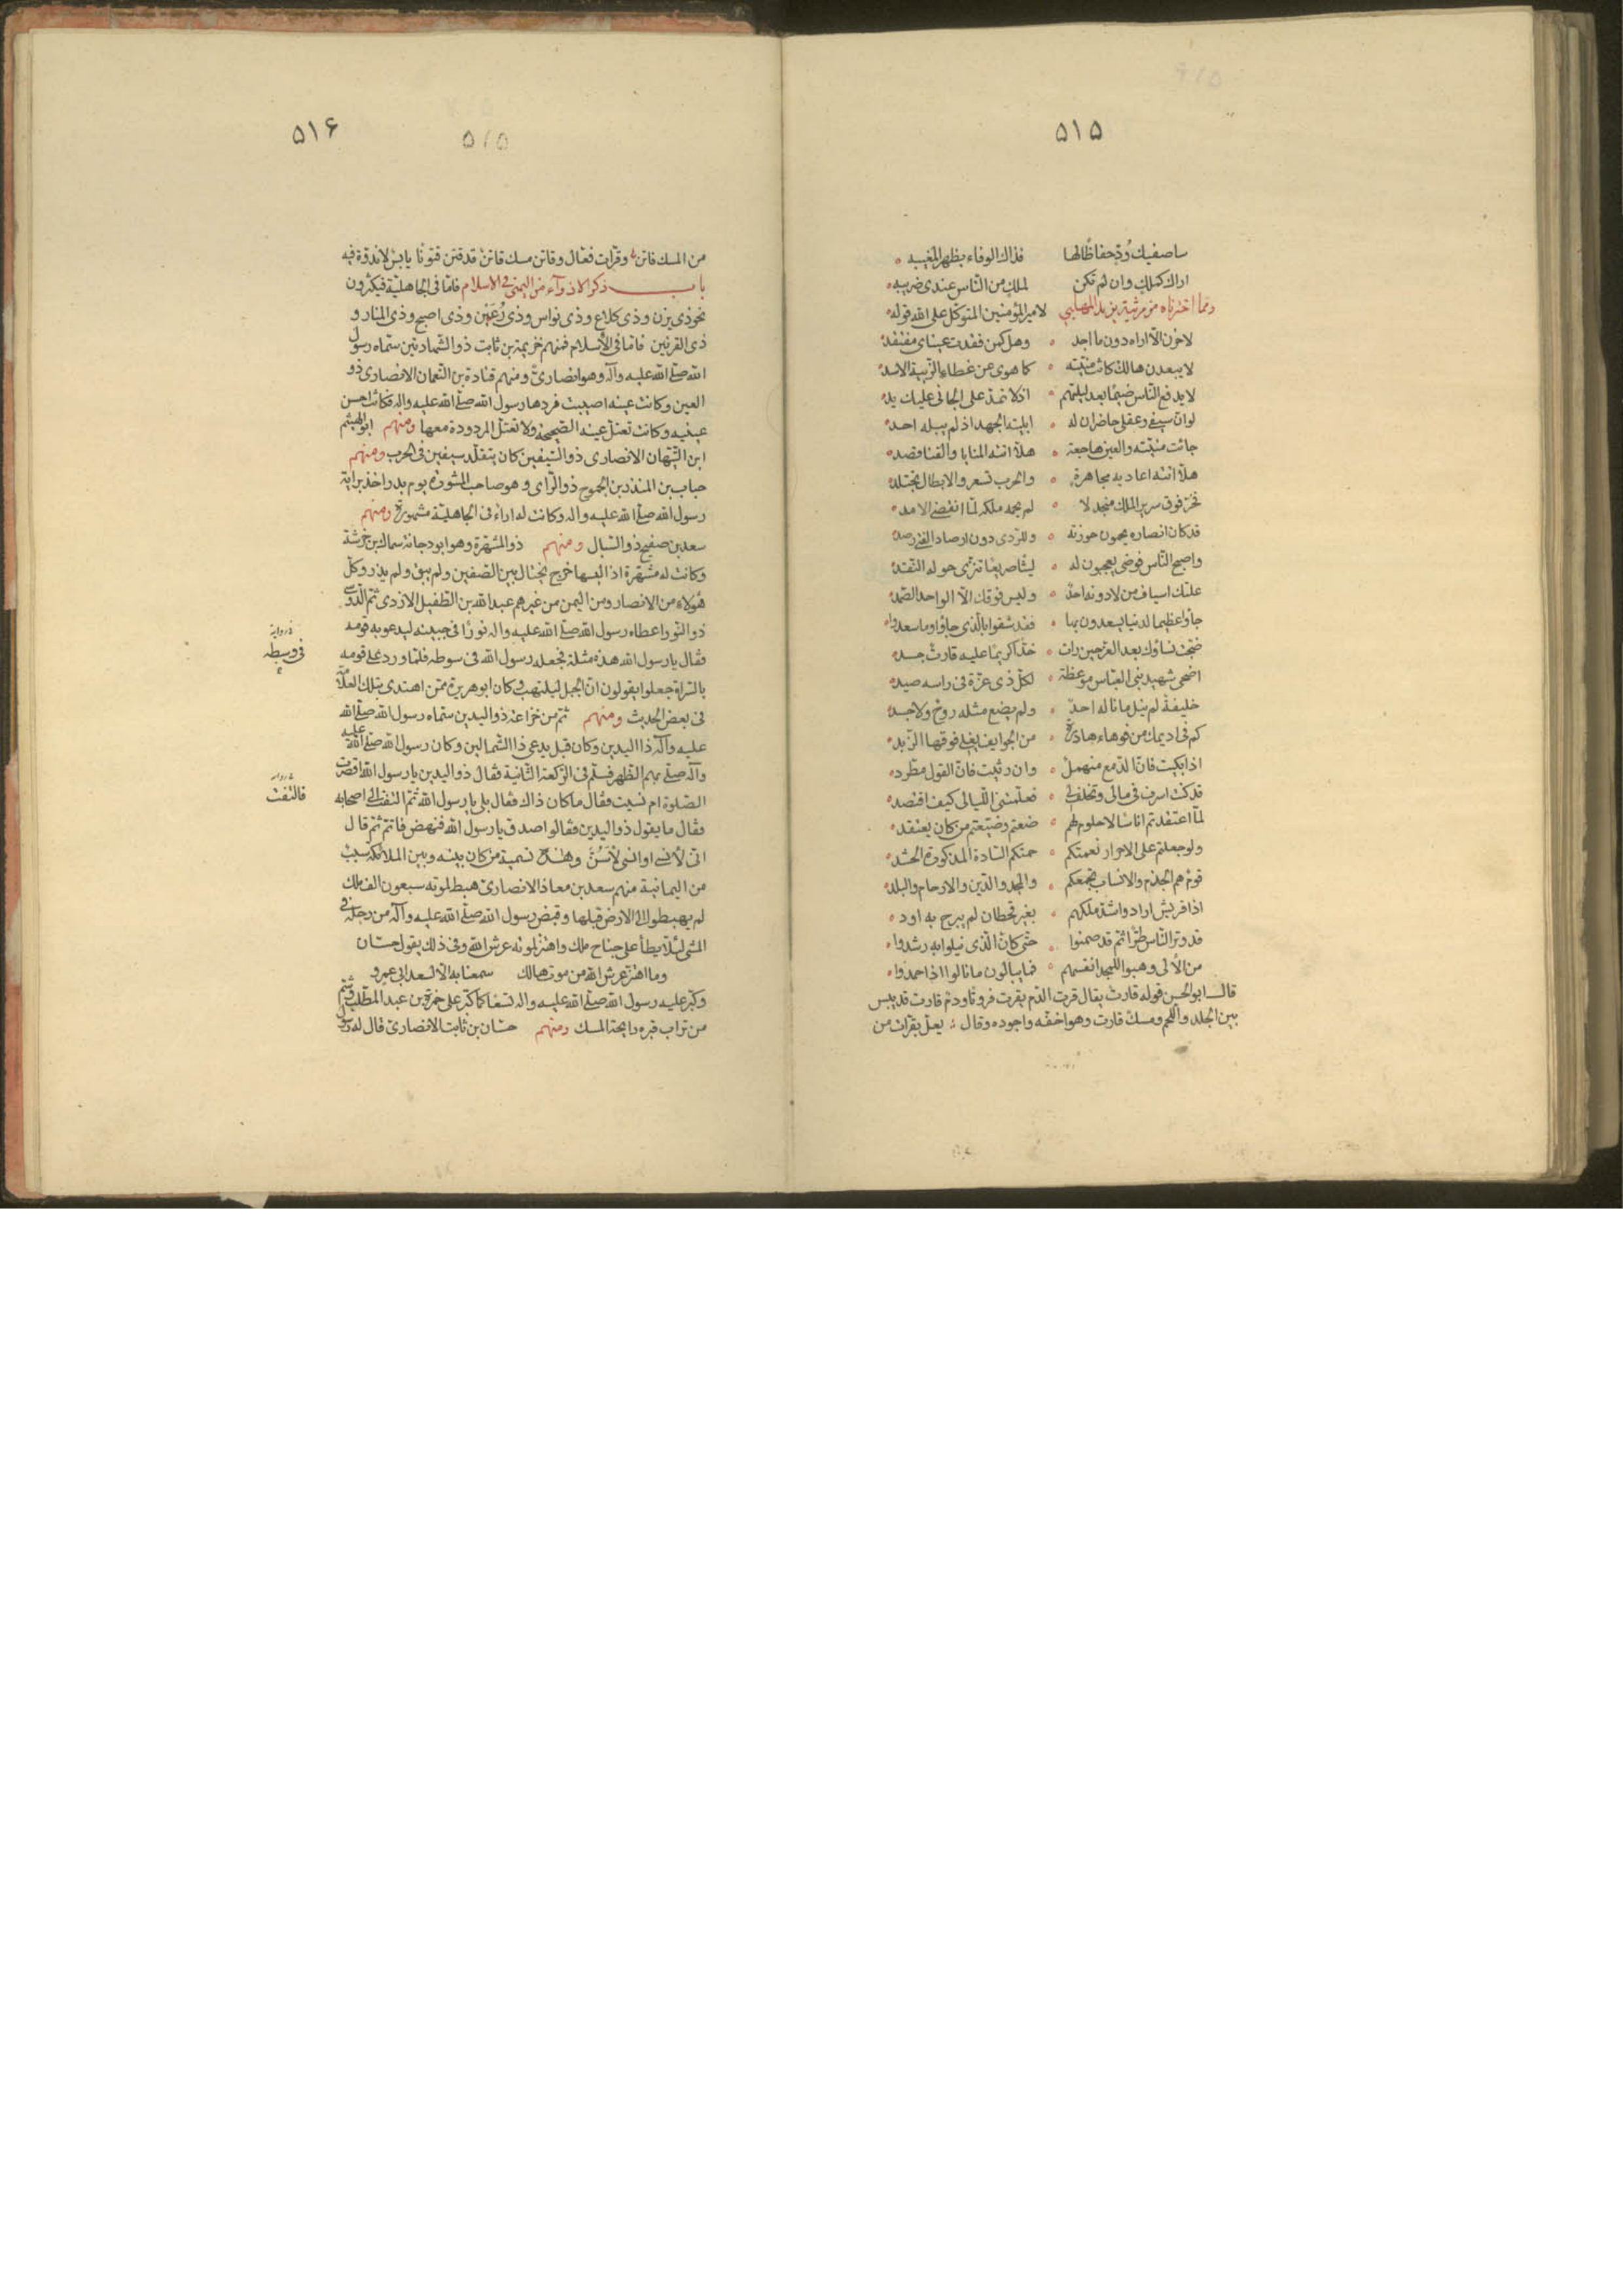 ۵۱۵
ساصفيك ودّي حفاظًا لها فذاك الوفاء بظهر المغيب
اراك كملك وان لم تكن لملك من الناس عندى ضريب
وممّا اخترناه من مرثية يزيد المهلبي لامير المؤمنين المتوكل على الله قوله
لا حزن الّا اراه دون ما اجد وهل كمن فقدت عيناى مفتقد
لا يبعدن هالك كانت منيّته كما هوى عن غطاء الزبية الاسد
لا يدفع الناس ضيمًا بعد ليلتهم اذ لا تمدّ على الجانى عليك يد
لو انّ سيفى وعقلى حاضران له ابليته الجهد اذ لم يبله احد
جائت منيّته والعين هاجعة هلّا اتته المنايا والقنا قصد
هلّا اتته اعاديه مجاهرة والحرب تسعر والابطال تجتلد
فخرّ فوق سرير الملك منجدلا لم يحمه ملكه لمّا انقضى الامد
قد كان انصاره يحمون حوزته وللردى دون ارصاد الفتى رصد
واصبح الناس فوضى يعجبون له ليثًا صريعًا تنزّى حوله النقد
علتك اسياف من لا دونه احد وليس فوقك الّا الواحد الصمد
جاؤا عظيما لدنيا يسعدون بها فقد شقوا بالذى جاؤا وما سعدوا
ضجّت نساؤك بعد العزّ حين رات خدّا كريمًا عليه قارت جسد
اضحى شهيد بنى العبّاس موعظة لكلّ ذى عزّة فى راسه صيد
خليفة لم ينل ما ناله احد ولم يضع مثله روح ولا جسد
كم فى اديمك من فوهاء هادرة من الجوايف يغلى فوقها الزبد
اذا بكيت فانّ الدمع منهمل وان رثيت فانّ القول مطّرد
قد كنت اسرف فى مالى وتخلف لى فعلّمتنى الليالى كيف اقتصد
لمّا اعتقدتم اناسًا لا حلوم لهم ضعتم وضيّعتم من كان يعتقد
ولو جعلتم على الاحرار نعمتكم حمتكم السادة المذكورة الحشد
قوم هم الجذم والانساب تجمعكم والمجد والدين والارحام والبلد
اذا قريش ارادوا شدّ ملكهم بغير قحطان لم يبرح به اود
قد وتر الناس طرّا ثم قد صمتوا حتى كانّ الذى نيلوا به رشدوا
من الألى وهبوا للمجد انفسهم فما يبالون ما نالوا اذا حمدوا
قال ابو الحسن قوله قارت يقال قرت الدّم يقرت قروتا ودم قارت قد يبس
بين الجلد واللحم ومسك قارت وهو اخفّه واجوده وقال يعلّ بقرّات من
۵۱۶
۵۱۵
من المسك قاتن وقرّات فعّال وقاتن مسك قاتن قد قتن قتونًا يابس لا ندوّة فيه
باب ذكر الاذوآء من اليمن فى الاسلام فامّا فى الجاهليّة فيكثرون
نحو ذى يزن وذى كلاع وذى نواس وذى رعين وذى اصبح وذى المنار و
ذى القرنين فامّا فى الاسلام فمنهم خزيمة بن ثابت ذو الشهادتين سمّاه رسول
الله صلّى الله عليه وآله وهو انصارىّ ومنهم قتادة بن النعمان الانصارى ذو
العين وكانت عينه اصيبت فردّها رسول الله صلّى الله عليه واله فكانت احسن
عينيه وكانت تعتلّ عينه الصحيحة ولا تعتلّ المردودة معها ومنهم ابو الهيثم
ابن التيّهان الانصارى ذو السيفين كان يتقلّد سيفين فى الحرب ومنهم
حباب بن المنذر بن الجموح ذو الراى وهو صاحب المشورة يوم بدر اخذ برايه
رسول الله صلّى الله عليه واله وكانت له اراء فى الجاهليّة مشهورة ومنهم
سعد بن صفيح ذو السبال ومنهم ذو المشهّرة وهو ابو دجانة سماك بن خرشة
وكانت له مشهّرة اذا لبسها خرج يختال بين الصفين ولم يبق ولم يذر وكلّ
هؤلاء من الانصار ومن اليمن من غيرهم عبد الله بن الطفيل الازدى ثم الدّوسى
ذو النور اعطاه رسول الله صلّى الله عليه واله نورًا فى جبينه ليدعو به قومه
فقال يا رسول الله هذه مثلة فجعله رسول الله فى سوطه فلمّا ورد على قومه
فى وسطه
بالسراة جعلوا يقولون انّ الجبل ليلتهب وكان ابو هريرة ممّن اهتدى بتلك العلامة
فى بعض الحديث ومنهم ثم من خزاعة ذو اليدين سمّاه رسول الله صلّى الله
عليه وآله ذا اليدين وكان قبل يدعى ذا الشمالين وكان رسول الله صلّى الله عليه
وآله صلّى بهم الظهر فسلّم فى الركعة الثانية فقال ذو اليدين يا رسول الله اقصرت
الصلوة ام نسيت فقال ما كان ذاك فقال بلى يا رسول الله ثم التفت الى اصحابه
فالتفت
فقال ما يقول ذو اليدين فقالوا صدق يا رسول الله فنهض فاتمّ ثم قال
انى لأنسى او انسّى لأسنّ وهذه تسمية من كان بينه وبين الملائكة سبب
من اليمانية منهم سعد بن معاذ الانصارى هبط لموته سبعون الف ملك
لم يهبطوا الى الارض قبلها وقبض رسول الله صلّى الله عليه وآله من رجله فى
المشى لئلّا يطأ على جناح ملك واهتزّ لموته عرش الله وفى ذلك يقول حسّان
وما اهتزّ عرش الله من موت هالك سمعنا به الّا لسعد ابى عمرو
وكبّر عليه رسول الله صلّى الله عليه واله تسعًا كما كبّر على حمزة بن عبد المطّلب وشمّ
من تراب قبره رايحة المسك ومنهم حسّان بن ثابت الانصارى قال له رسول